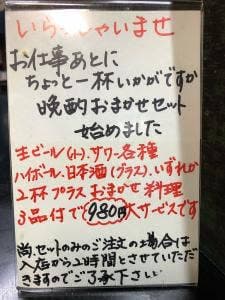 いらっしゃいませ
お仕事あとに
ちょっと一杯いかがですか
晩酌おまかせセット
始めました
生ビール(小)、サワー各種
ハイボール、日本酒(グラス)、いずれか
2杯プラスおまかせ料理
3品付で980円大サービスです
尚セットのみのご注文の場合は
入店から2時間とさせていただ
きますのでご了承下さい